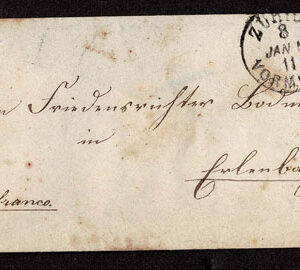 ZÜRI
8
JAN
11
VORM
n Friedensrichter Bodm
in
Erlenba
franco.